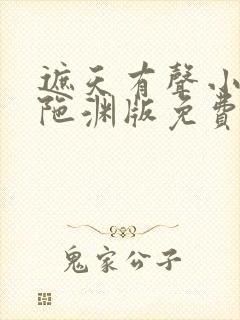 遮天有聲小
陋渊版免費
鬼家公子